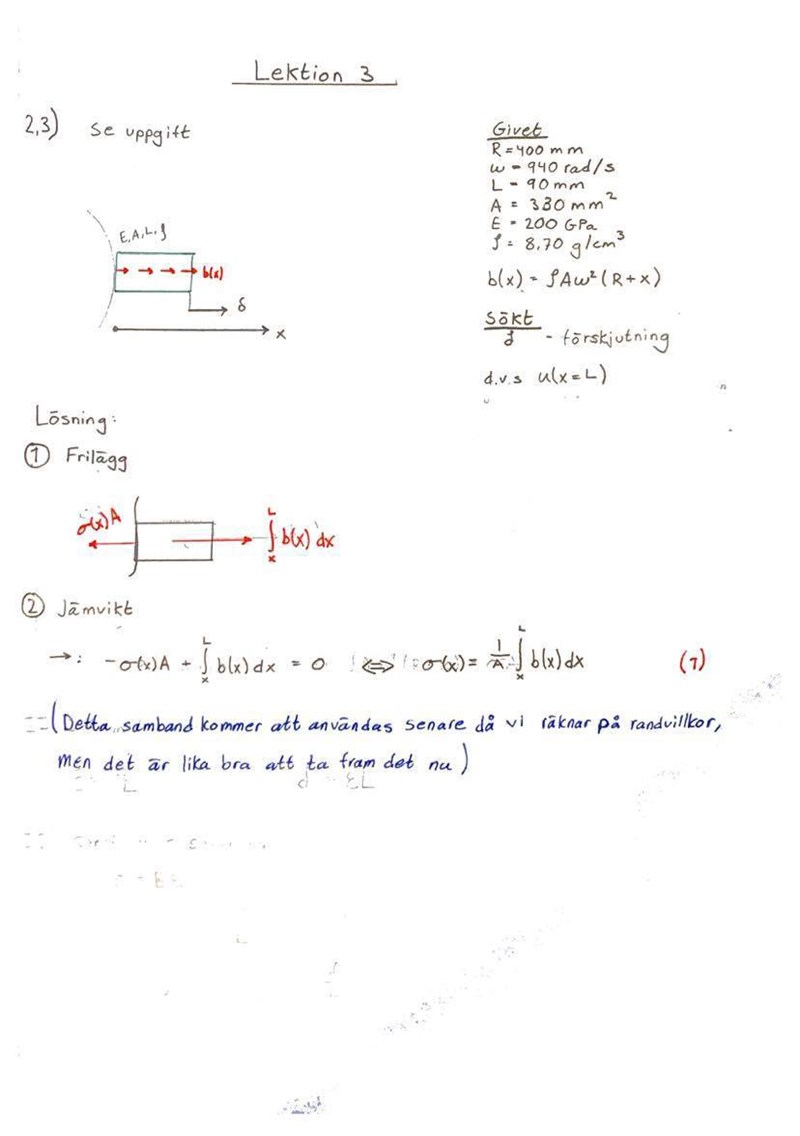 Lektion 3
2,3) Se uppgift
Givet
R = 400 mm
ω = 940 rad/s
L = 90 mm
A = 330 mm²
E = 200 GPa
ρ = 8,70 g/cm³
b(x) = ρAω²(R+x)
Sökt
δ - förskjutning
d.v.s u(x=L)
E,A,L,ρ
b(x)
δ
x
Lösning:
① Frilägg
σ(x)A
∫ₓᴸ b(x) dx
② Jämvikt
→: -σ(x)A + ∫ₓᴸ b(x) dx = 0 ⇔ σ(x) = 1/A ∫ₓᴸ b(x) dx (1)
(Detta samband kommer att användas senare då vi räknar på randvillkor,
men det är lika bra att ta fram det nu)